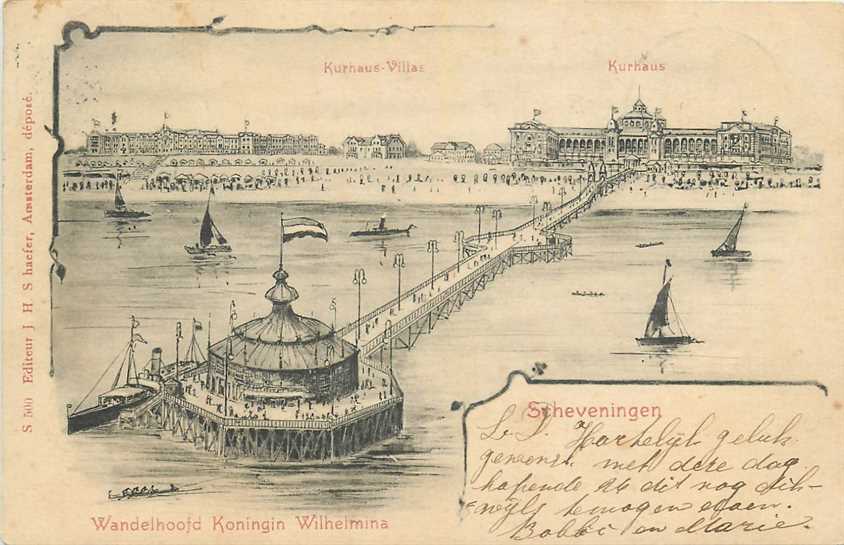 Kurhaus-Villas
Kurhaus
S 500 Editeur J H S haefer, Amsterdam, déposé.
Scheveningen
L. S. Hartelijk geluk
gewenscht met deze dag
hopende dit nog dik-
wijls te mogen
Bobbi en Marie.
Wandelhoofd Koningin Wilhelmina